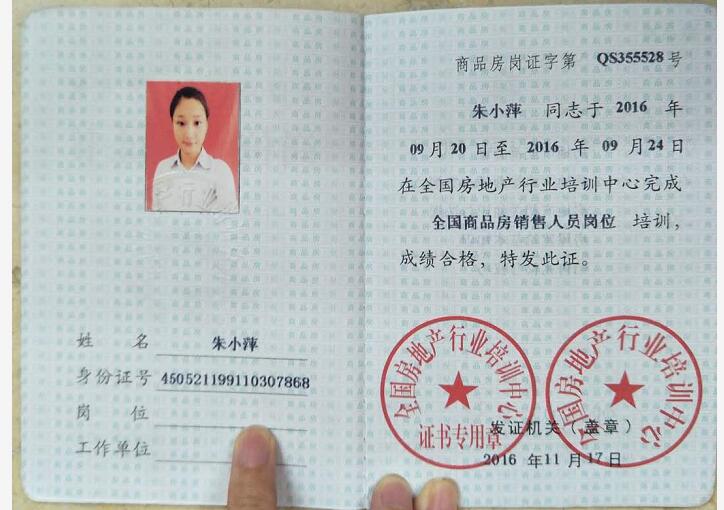 姓名 朱小萍
身份证号 450521199110307868
岗位
工作单位
商品房岗证字第 QS355528号
朱小萍 同志于 2016 年
09月20日至 2016 年 09月24日
在全国房地产行业培训中心完成
全国商品房销售人员岗位 培训,
成绩合格，特发此证。
全国房地产行业培训中心
证书专用章
全国房地产行业培训中心
发证机关（盖章）
2016 年11月17日